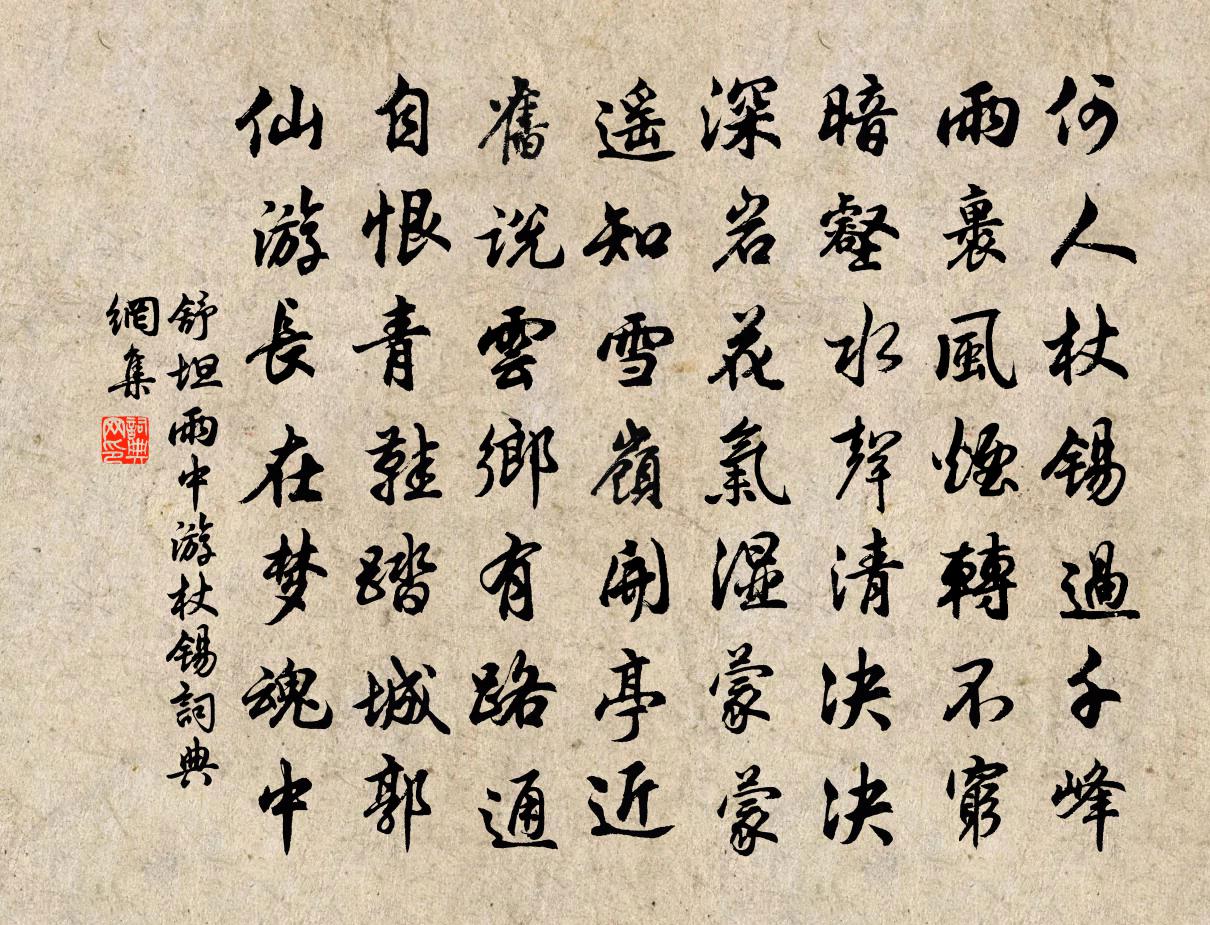 何人杖錫過千峰
雨裹風煙轉不窮
暗壑水聲清決決
深岩花氣濕蒙蒙
遥知雪嶺開亭近
舊説雲鄉有路通
自恨青鞋踏城郭
仙游長在梦魂中
舒坦雨中游杖錫詞典
網集
詞典
网印